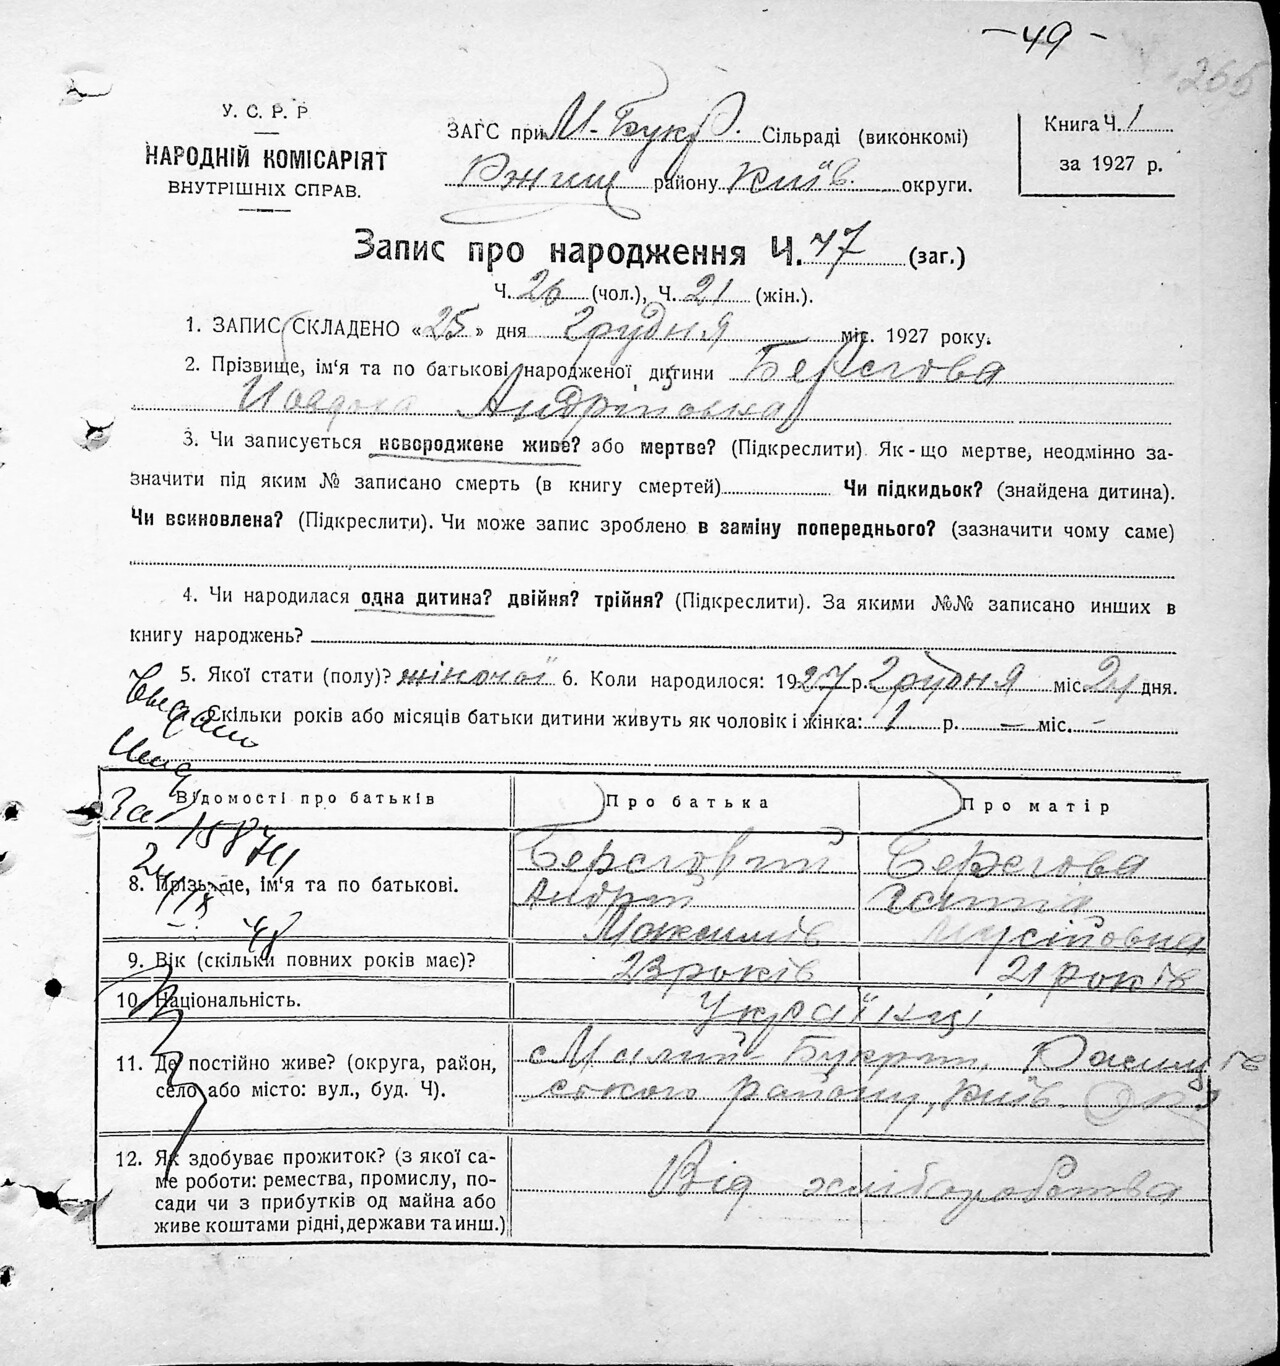 — 49 —
266
У. С. Р. Р
НАРОДНІЙ КОМІСАРІЯТ
ВНУТРІШНІХ СПРАВ.
ЗАГС при М-Букр. Сільраді (виконкомі)
Ржищ району Київ. округи.
Книга Ч. 1
за 1927 р.
Запис про народження Ч. 47 (заг.)
Ч. 26 (чол.), Ч. 21 (жін.).
1. ЗАПИС СКЛАДЕНО «25» дня Грудня міс. 1927 року.
2. Прізвище, ім'я та по батькові народженої дитини Берегова
Андріївна
3. Чи записується новороджене живе? або мертве? (Підкреслити). Як-що мертве, неодмінно за-
значити під яким № записано смерть (в книгу смертей) Чи підкидьок? (знайдена дитина).
Чи всиновлена? (Підкреслити). Чи може запис зроблено в заміну попереднього? (зазначити чому саме)
4. Чи народилася одна дитина? двійня? трійня? (Підкреслити). За якими №№ записано инших в
книгу народжень?
5. Якої стати (полу)? жіночої 6. Коли народилося: 1927 р. Грудня міс. 21 дня.
Скільки років або місяців батьки дитини живуть як чоловік і жінка: 1 р. — міс. —
Відомості про батьків
Про батька
Про матір
За 15874
8. Прізвище, ім'я та по батькові.
Береговий
Андрій
Максимів
Берегова
Мусіївна
48
9. Вік (скільки повних років має)?
23 років
21 років
10. Національність.
Українці
11. Де постійно живе? (округа, район,
село або місто: вул., буд. Ч).
с Малий Букрин, Ржищів
ського району, Київ. Окр
12. Як здобуває прожиток? (з якої са-
ме роботи: ремества, промислу, по-
сади чи з прибутків од майна або
живе коштами рідні, держави та инш.)
Від хліборобства